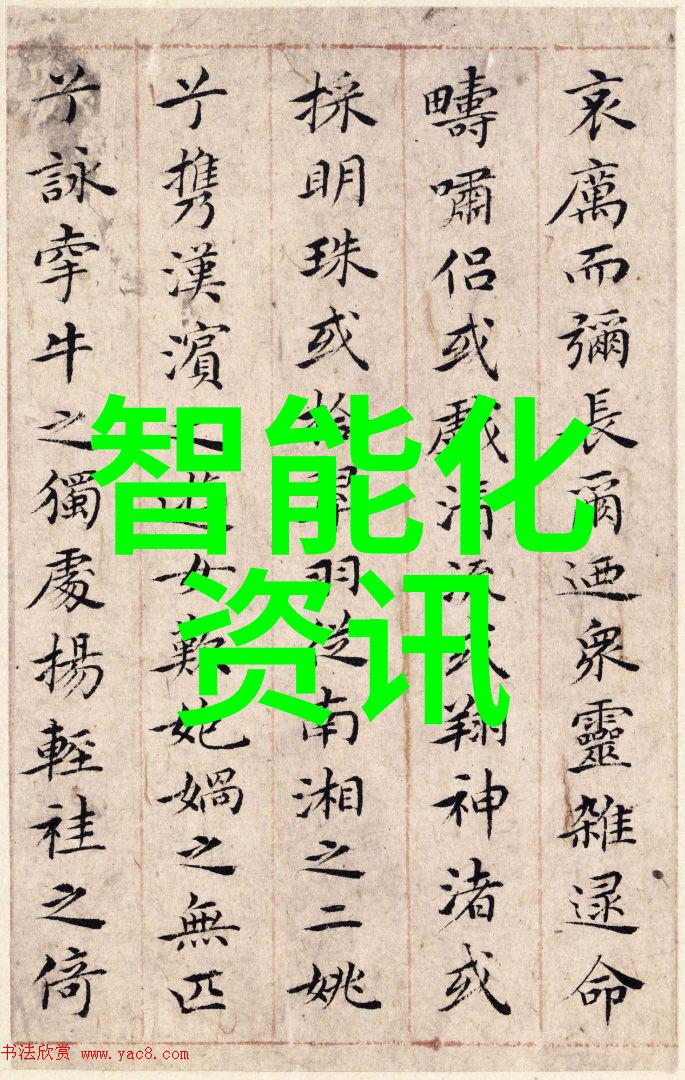 哀厲而彌長爾迺衆靈雜遝命
疇嘯侶或戲清流或翔神渚或
採明珠或拾翠羽從南湘之二姚
兮携漢濱之遊女歎媧之無匹
兮詠牽牛之獨處揚輕袿之倚
智能化
资讯
书法欣赏 www.yac8.com